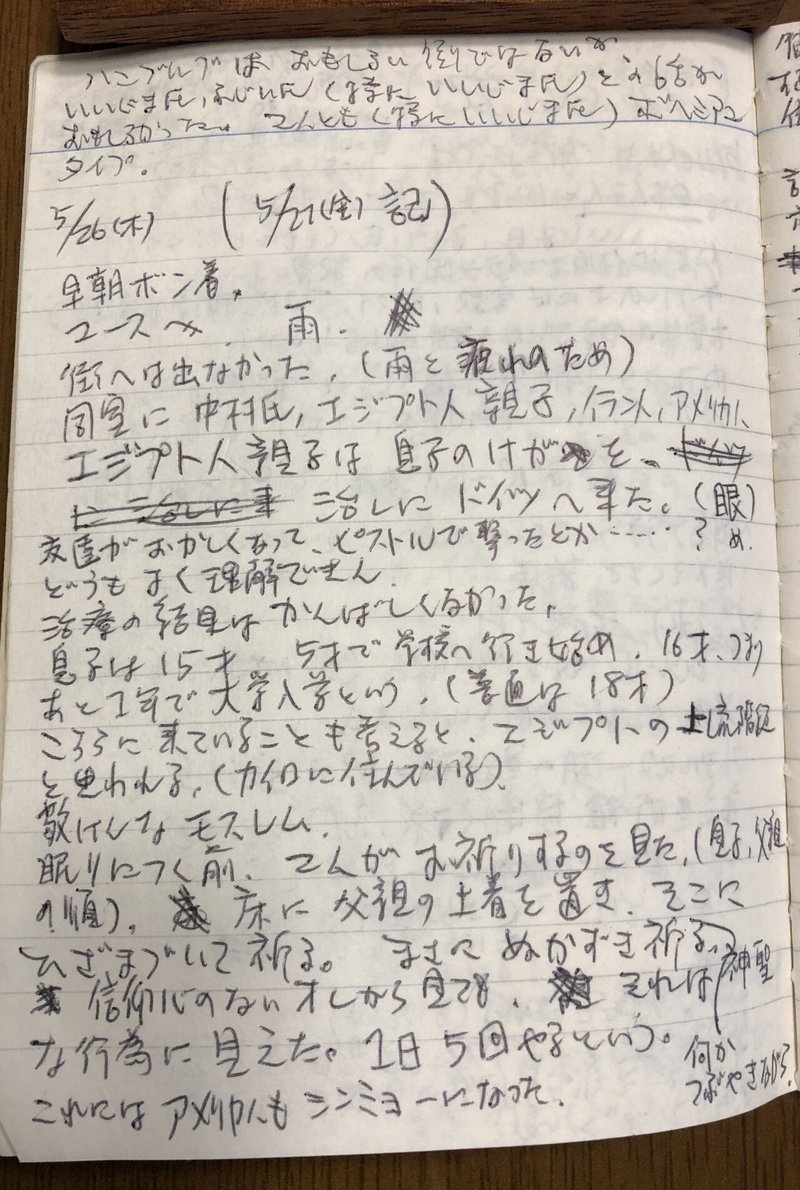 ハンブルグは、おもしろい街ではないが、
いいじま氏、ふじい氏(特にいいじま氏)との話が
おもしろかった。2人とも(特にいいじま氏)ボヘミアン
タイプ。
5/26(木) (5/27(金)記)
早朝ボン着。
ユースへ。雨。
街へは出なかった。(雨と疲れのため)
同室に中村氏,エジプト人親子,イラン人,アメリカ人、
エジプト人親子は息子のけがを、
治しにドイツへ来た。(眼)
友達がおかしくなって、ピストルで撃ったとか……? め
どうもよく理解できん。
治療の結果はかんばしくなかった。
息子は15才 5才で学校へ行き始め、16才、つまり
あと1年で大学入学という。(普通は18才)
こちらに来ていることも考えると、エジプトの上流階級
と思われる。(カイロに住んでいる)。
敬けんなモスレム。
眠りにつく前、2人がお祈りするのを見た。(息子、父親
の順)。床に父親の上着を置き、そこに
ひざまづいて祈る。まさにぬかずき祈る。
信仰心のないオレから見ても、それは神聖
な行為に見えた。1日5回やるという。
何か
つぶやきながら。
これにはアメリカ人もシンミョーになった。